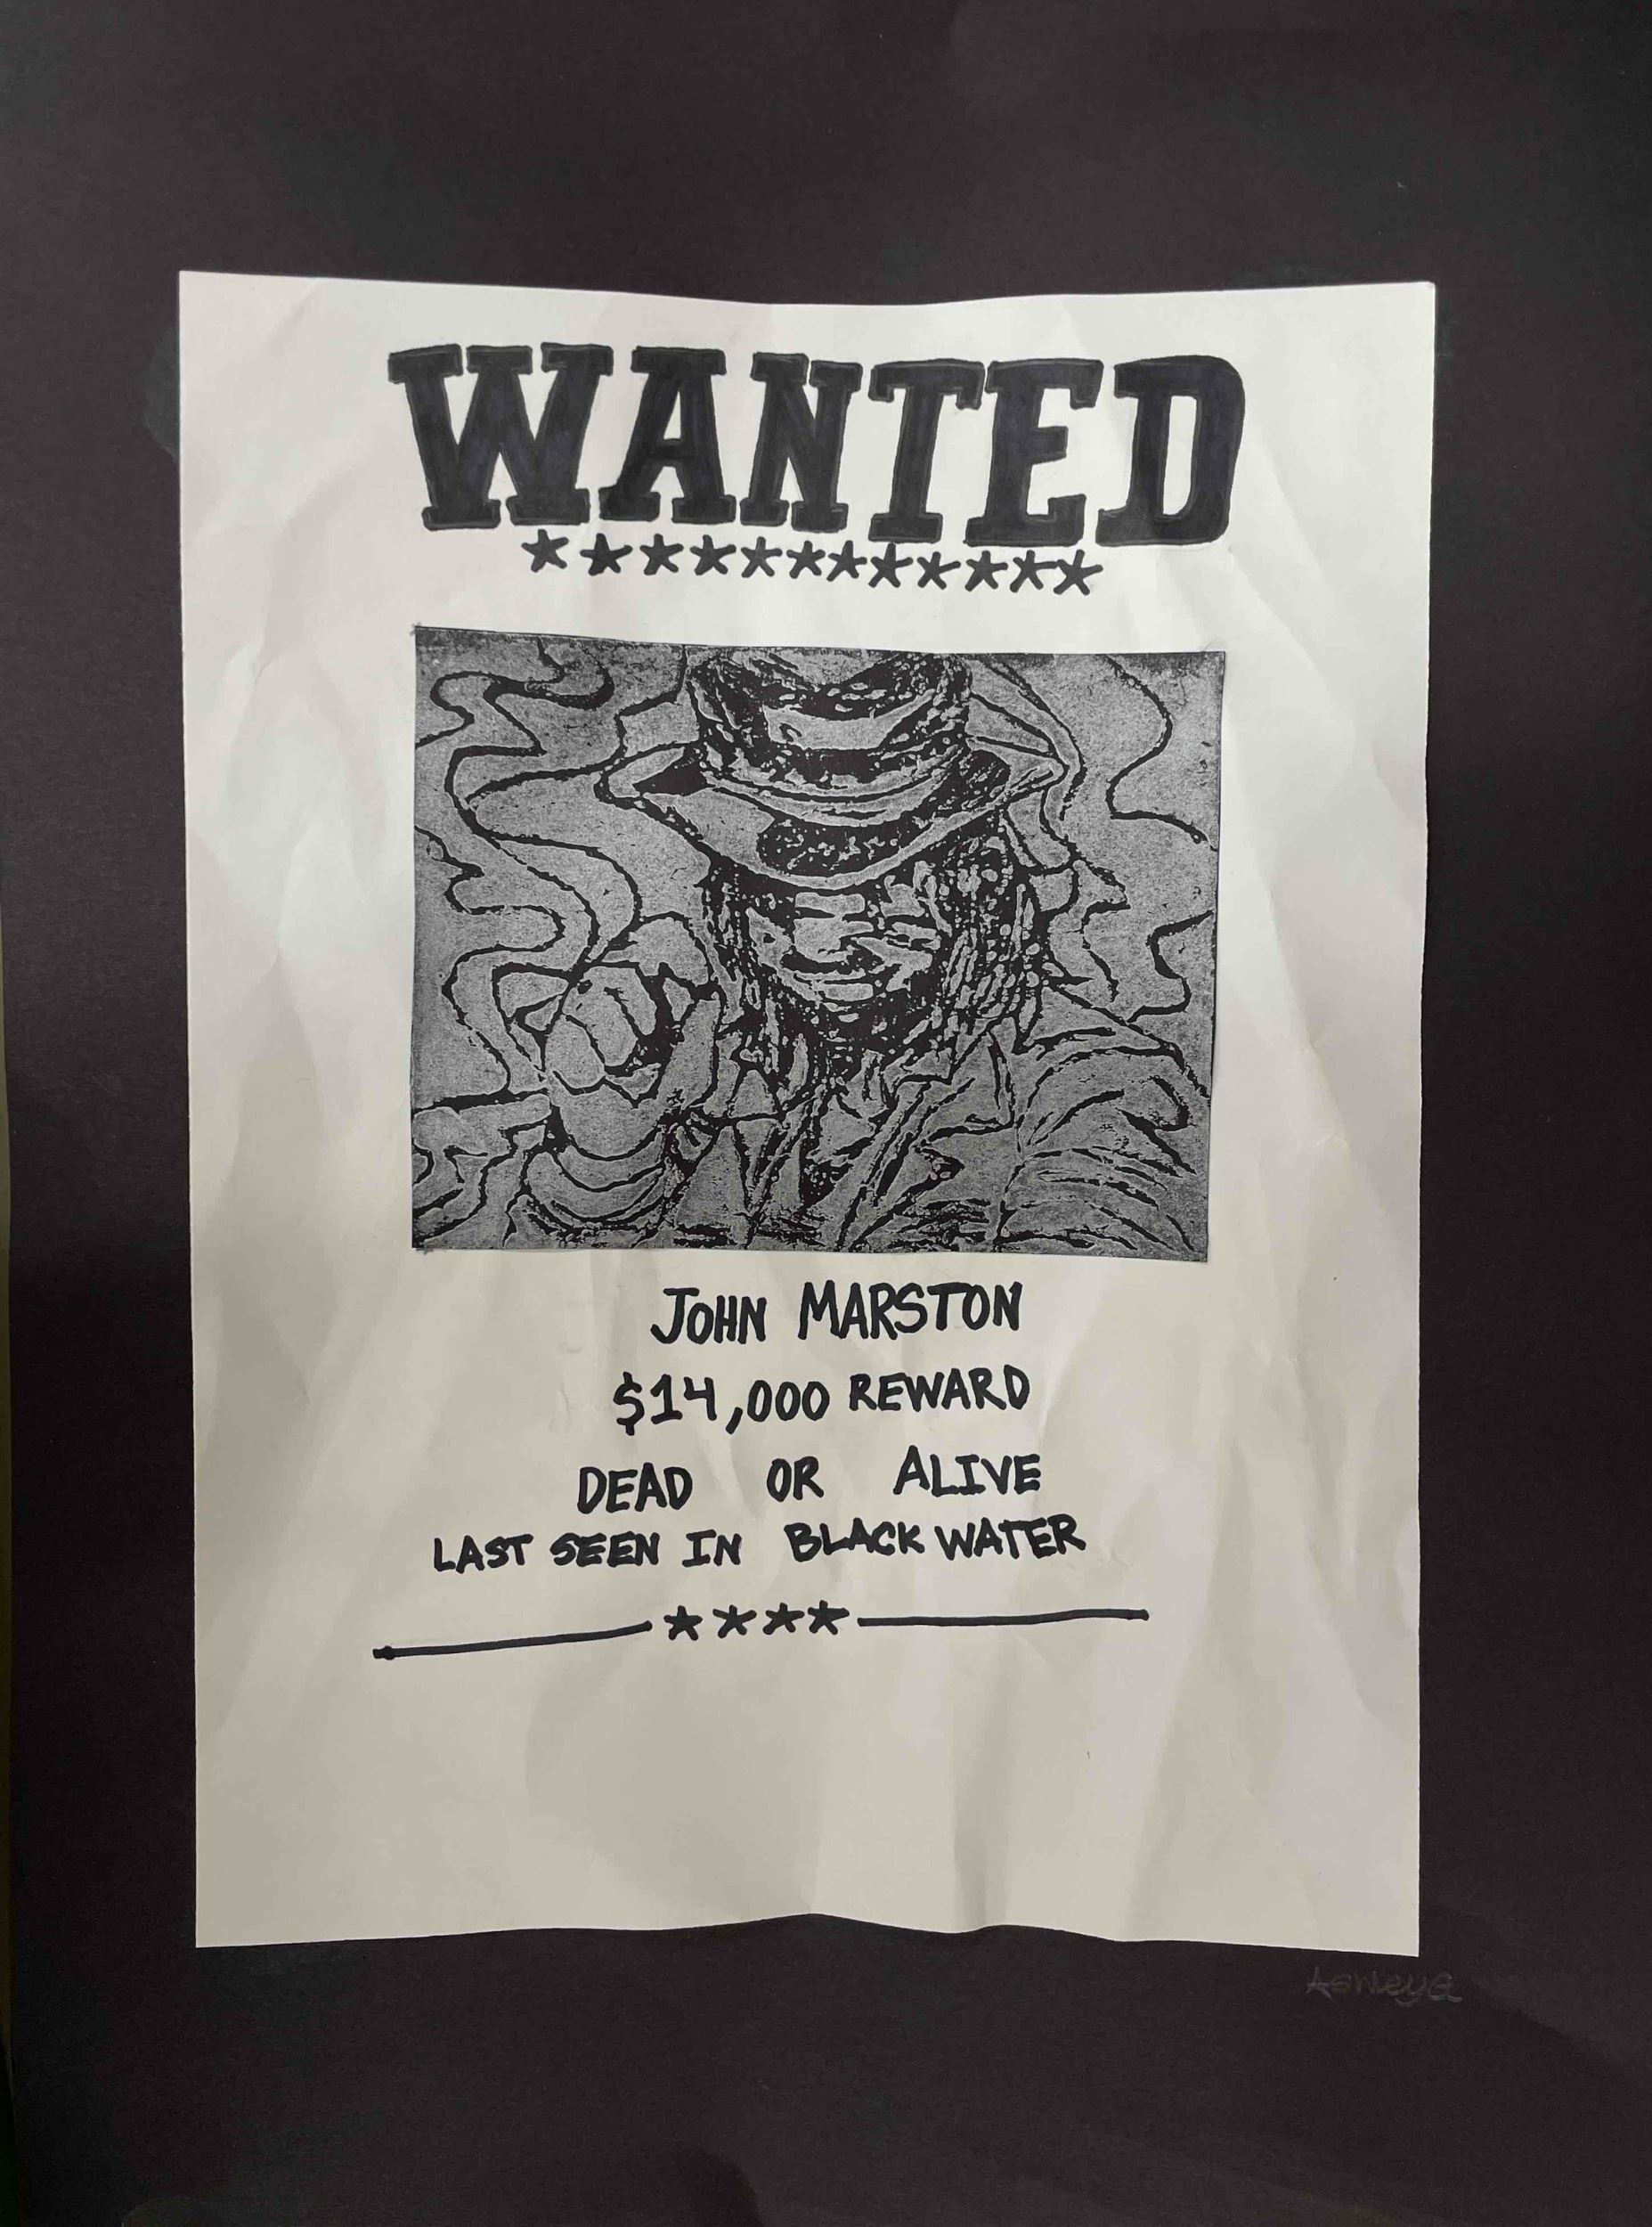 WANTED
JOHN MARSTON
$14,000 REWARD
DEAD OR ALIVE
LAST SEEN IN BLACK WATER